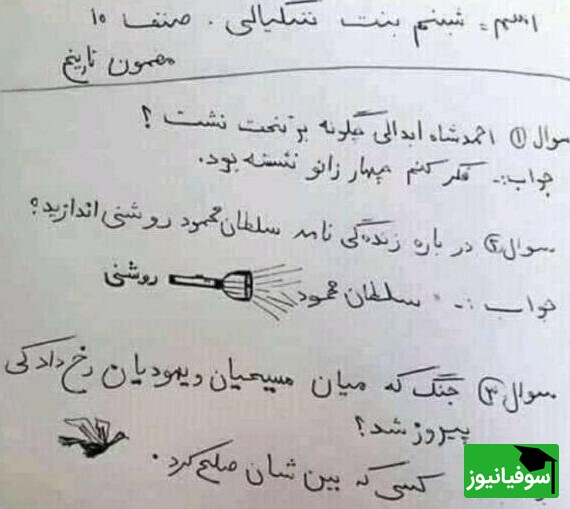 اسم = شبنم بنت شگیالی . صنف ۱۰
مضمون تاریخ
سوال ۱ احمدشاه ابدالی چگونه بر تخت نشست ؟
جواب :- فکر کنم چهار زانو نشسته بود.
سوال ۲ در باره زندگی نامه سلطان محمود روشنی اندازید؟
جواب :- سلطان محمود روشنی
سوال ۳ جنگ که میان مسیحیان و یهودیان رخ داد کی
پیروز شد؟
کسی که بین شان صلح کرد .
سوفیانیوز